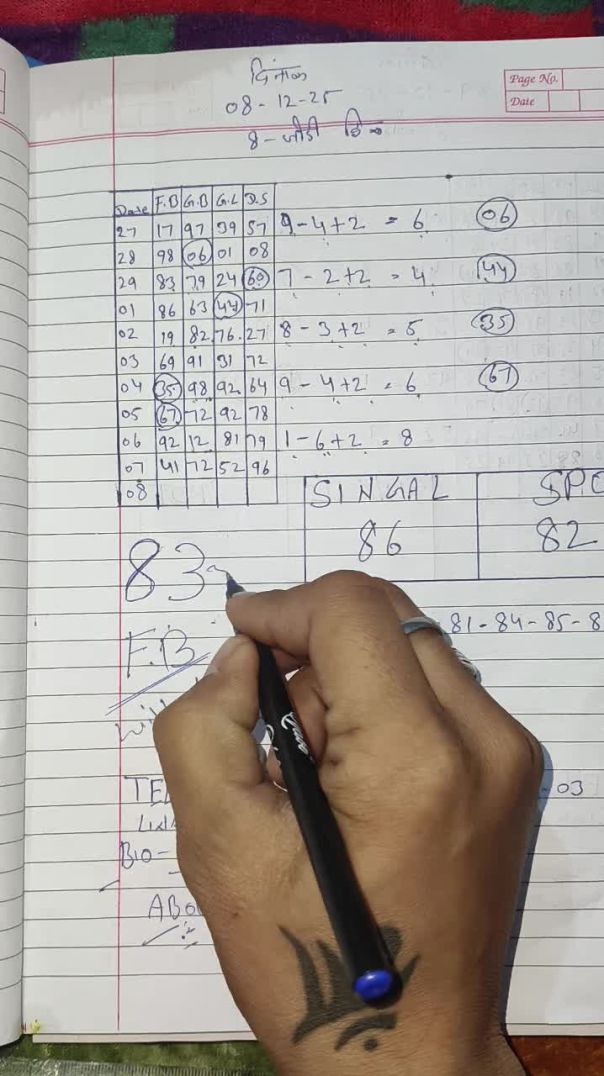 दिनांक
08-12-25
8-जोडी
Page No.
Date
Date F.B G.B G.L D.S
27 17 97 39 57 9-4+2 = 6 06
28 98 06 01 08
29 83 79 24 60 7-2+2 = 4 44
01 86 63 44 71
02 19 82 76 27 8-3+2 = 5 35
03 69 91 31 72
04 35 98 92 64 9-4+2 = 6 67
05 67 72 92 78
06 92 12 81 79 1-6+2 = 8
07 41 72 52 96
08
SINGAL
86 82
83
81-84-85-8
F.B
03
BIO-